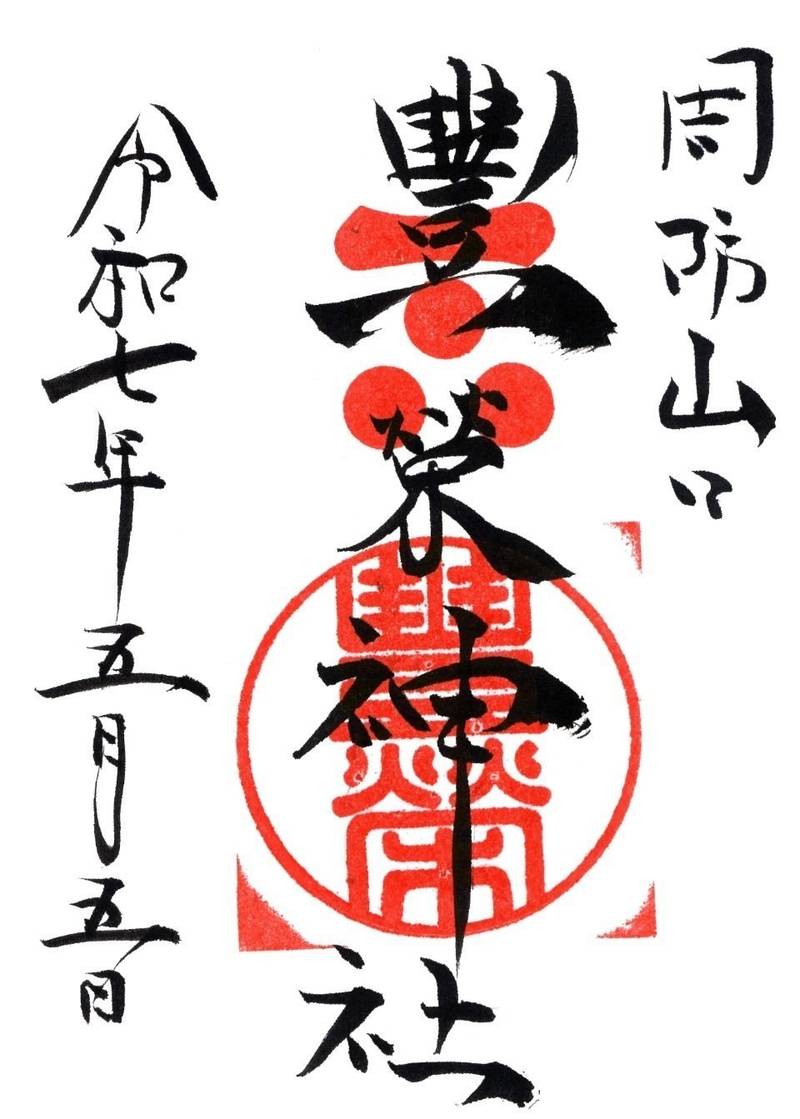 周防山口
豐榮神社
豐榮
令和七年五月五日